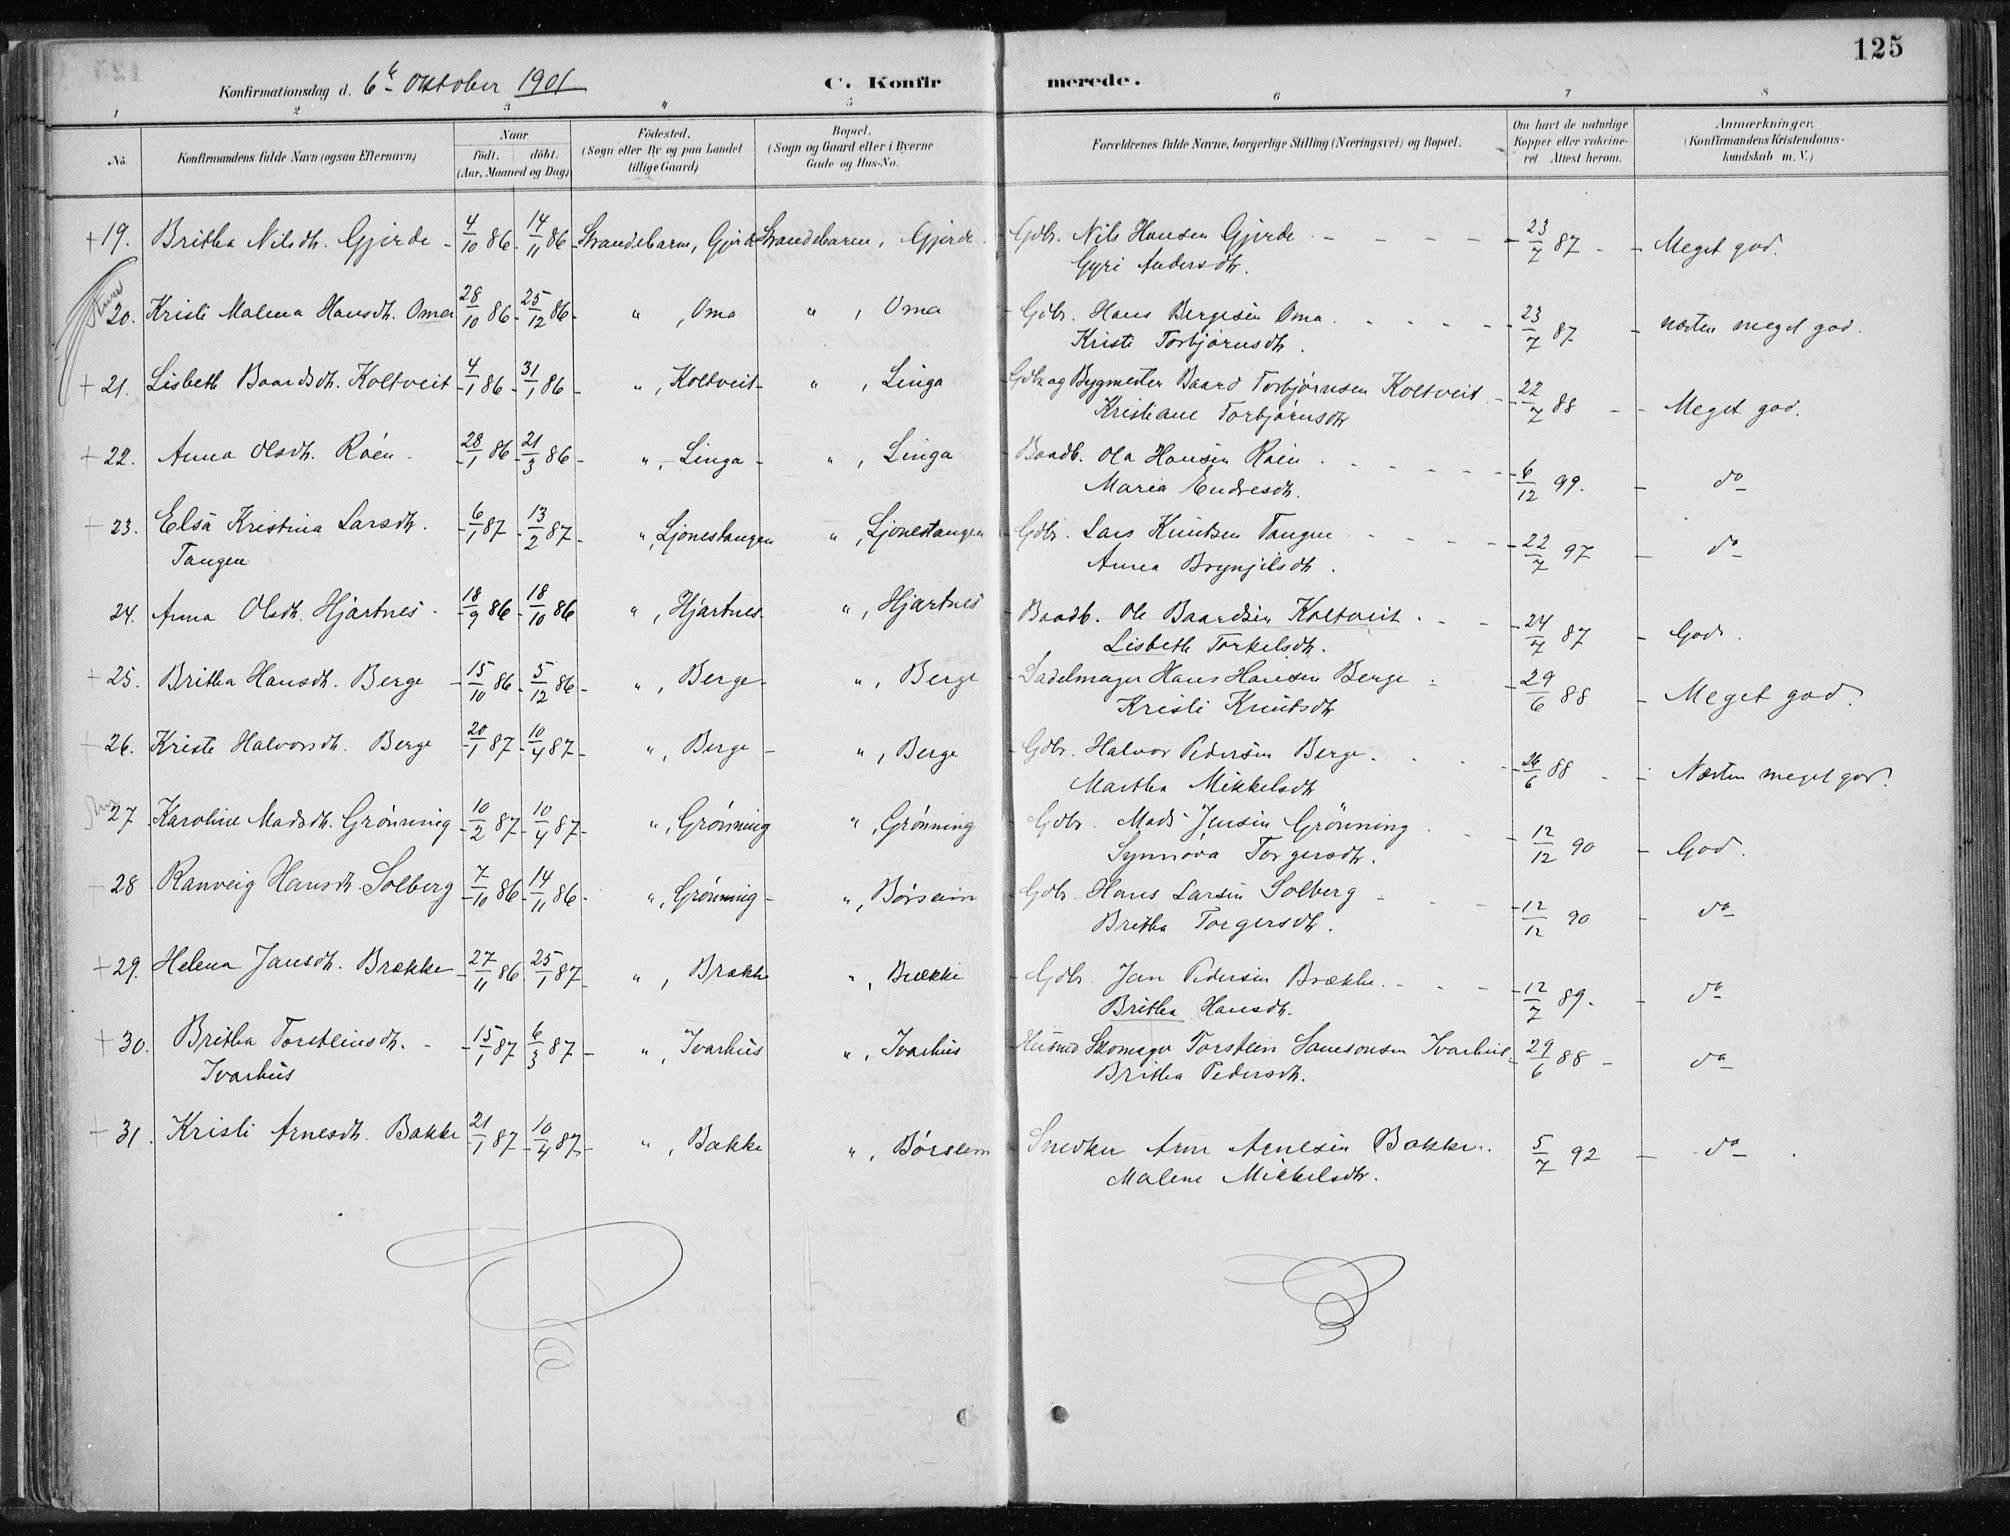 125
Konfirmationsdag d. 6te Oktober 1901 C. Konfirmerede.
1 2 3 4 5 6 7 8
No. Konfirmandens fulde Navn (ogsaa Efternavn) Naar født. døbt. (Aar, Maaned og Dag) Fødested. (Sogn eller By og paa Landet tillige Gaard) Bopæl. (Sogn og Gaard eller i Byerne Gade og Hus-No. Forældrenes fulde Navne, borgerlige Stilling (Næringsvei) og Bopæl. Om havt de naturlige Kopper eller vakcineret. Attest herom. Anmærkninger. (Konfirmandens Kristendomskundskab m. V.)
+ 19. Britha Nilsdtr. Gjerde - 4/10 86. 14/11 86 - Strandebarm, Gjerde Strandebarm, Gjerde. Gdbr. Nils Hansen Gjerde - - - - 23/7 87 - - Meget god.
Gyri Andersdtr.
20. Kristi Malena Hansdtr. Oma 28/10 86 - 25/12 86 - " , Oma " , Oma - Gdbr. Hans Bergesen Oma. - - - - 23/7 87 - næsten meget god.
Kristi Torbjørnsdtr.
+ 21. Lisbeth Baardsdtr. Koltveit 4/1 86 - 31/1 86 - " , Koltveit - " , Linga - Gdbr. og Bygmester Baard Torbjørnsen Koltveit - 22/7 88 - - Meget god.
Kristiane Torbjørnsdtr
+ 22. Anna Olsdtr. Røen - 28/1 86 - 21/3 86 - " , Linga - " , Linga - Baadb. Ola Hansen Røen . - - - - 6/12 99. - do
Maria Endresdtr.
23. Elsa Kristina Larsdtr. - 6/1 87 - 13/2 87 - " , Ljonestangen " , Ljonestangen - Gdbr. Lars Knutsen Tangen - - - - 22/7 97 - do
Tangen Anna Brynjilsdtr.
24. Anna Olsdtr. Hjartnes - 18/9 86 - 18/10 86 " , Hjartnes - " , Hjartnes - Baadb. Ole Baardsen Koltveit . - - 24/7 87 - God.
Lisbeth Torkelsdtr.
+ 25. Britha Hansdtr. Berge - 15/10 86 - 5/12 86 - " , Berge - " , Berge - Sadelmager Hans Hansen Berge - - 29/6 88 - Meget god.
Kristi Knutsdtr
+ 26. Kriste Halvorsdtr. Berge 20/1 87 - 10/4 87 - " , Berge - " , Berge - Gdbr. Halvor Pedersen Berge . - - - 26/6 88 - - Næsten meget god.
Martha Mikkelsdtr
27 Karoline Madsdtr. Grønning - 10/2 87 - 10/4 87 - " , Grønning " , Grønning - Gdbr. Mads Jensen Grønning . - - 12/12 90 - God.
Synnøva Torgersdtr.
28 Ranveig Hansdtr. Solberg - 7/10 86 - 14/11 86 - " , Grønning - " , Børseim - Gdbr. Hans Larsen Solberg - - - 12/12 90 - do
Britha Torgersdtr.
+ 29. Helena Jansdtr. Brække - 27/11 86 - 25/1 87 - " , Brække " , Brække - Gdbr. Jan Pedersen Brække. - - - 12/7 89. - do
Britha Hansdtr.
+ 30. Britha Torsteinsdtr. - - 15/1 87 - 6/3 87 - " , Ivarhus " , Ivarhus Husmd Skomager Torstein Samsonsen Ivarhus - 29/6 88 - do
Ivarhus Britha Pedersdtr.
31. Kristi Arnesdtr. Bakke 21/1 87 - 10/4 87 - " , Bakke " , Børseim - Snedker Arne Arnesen Bakke . 5/7 92 - do
Malene Mikkelsdtr.